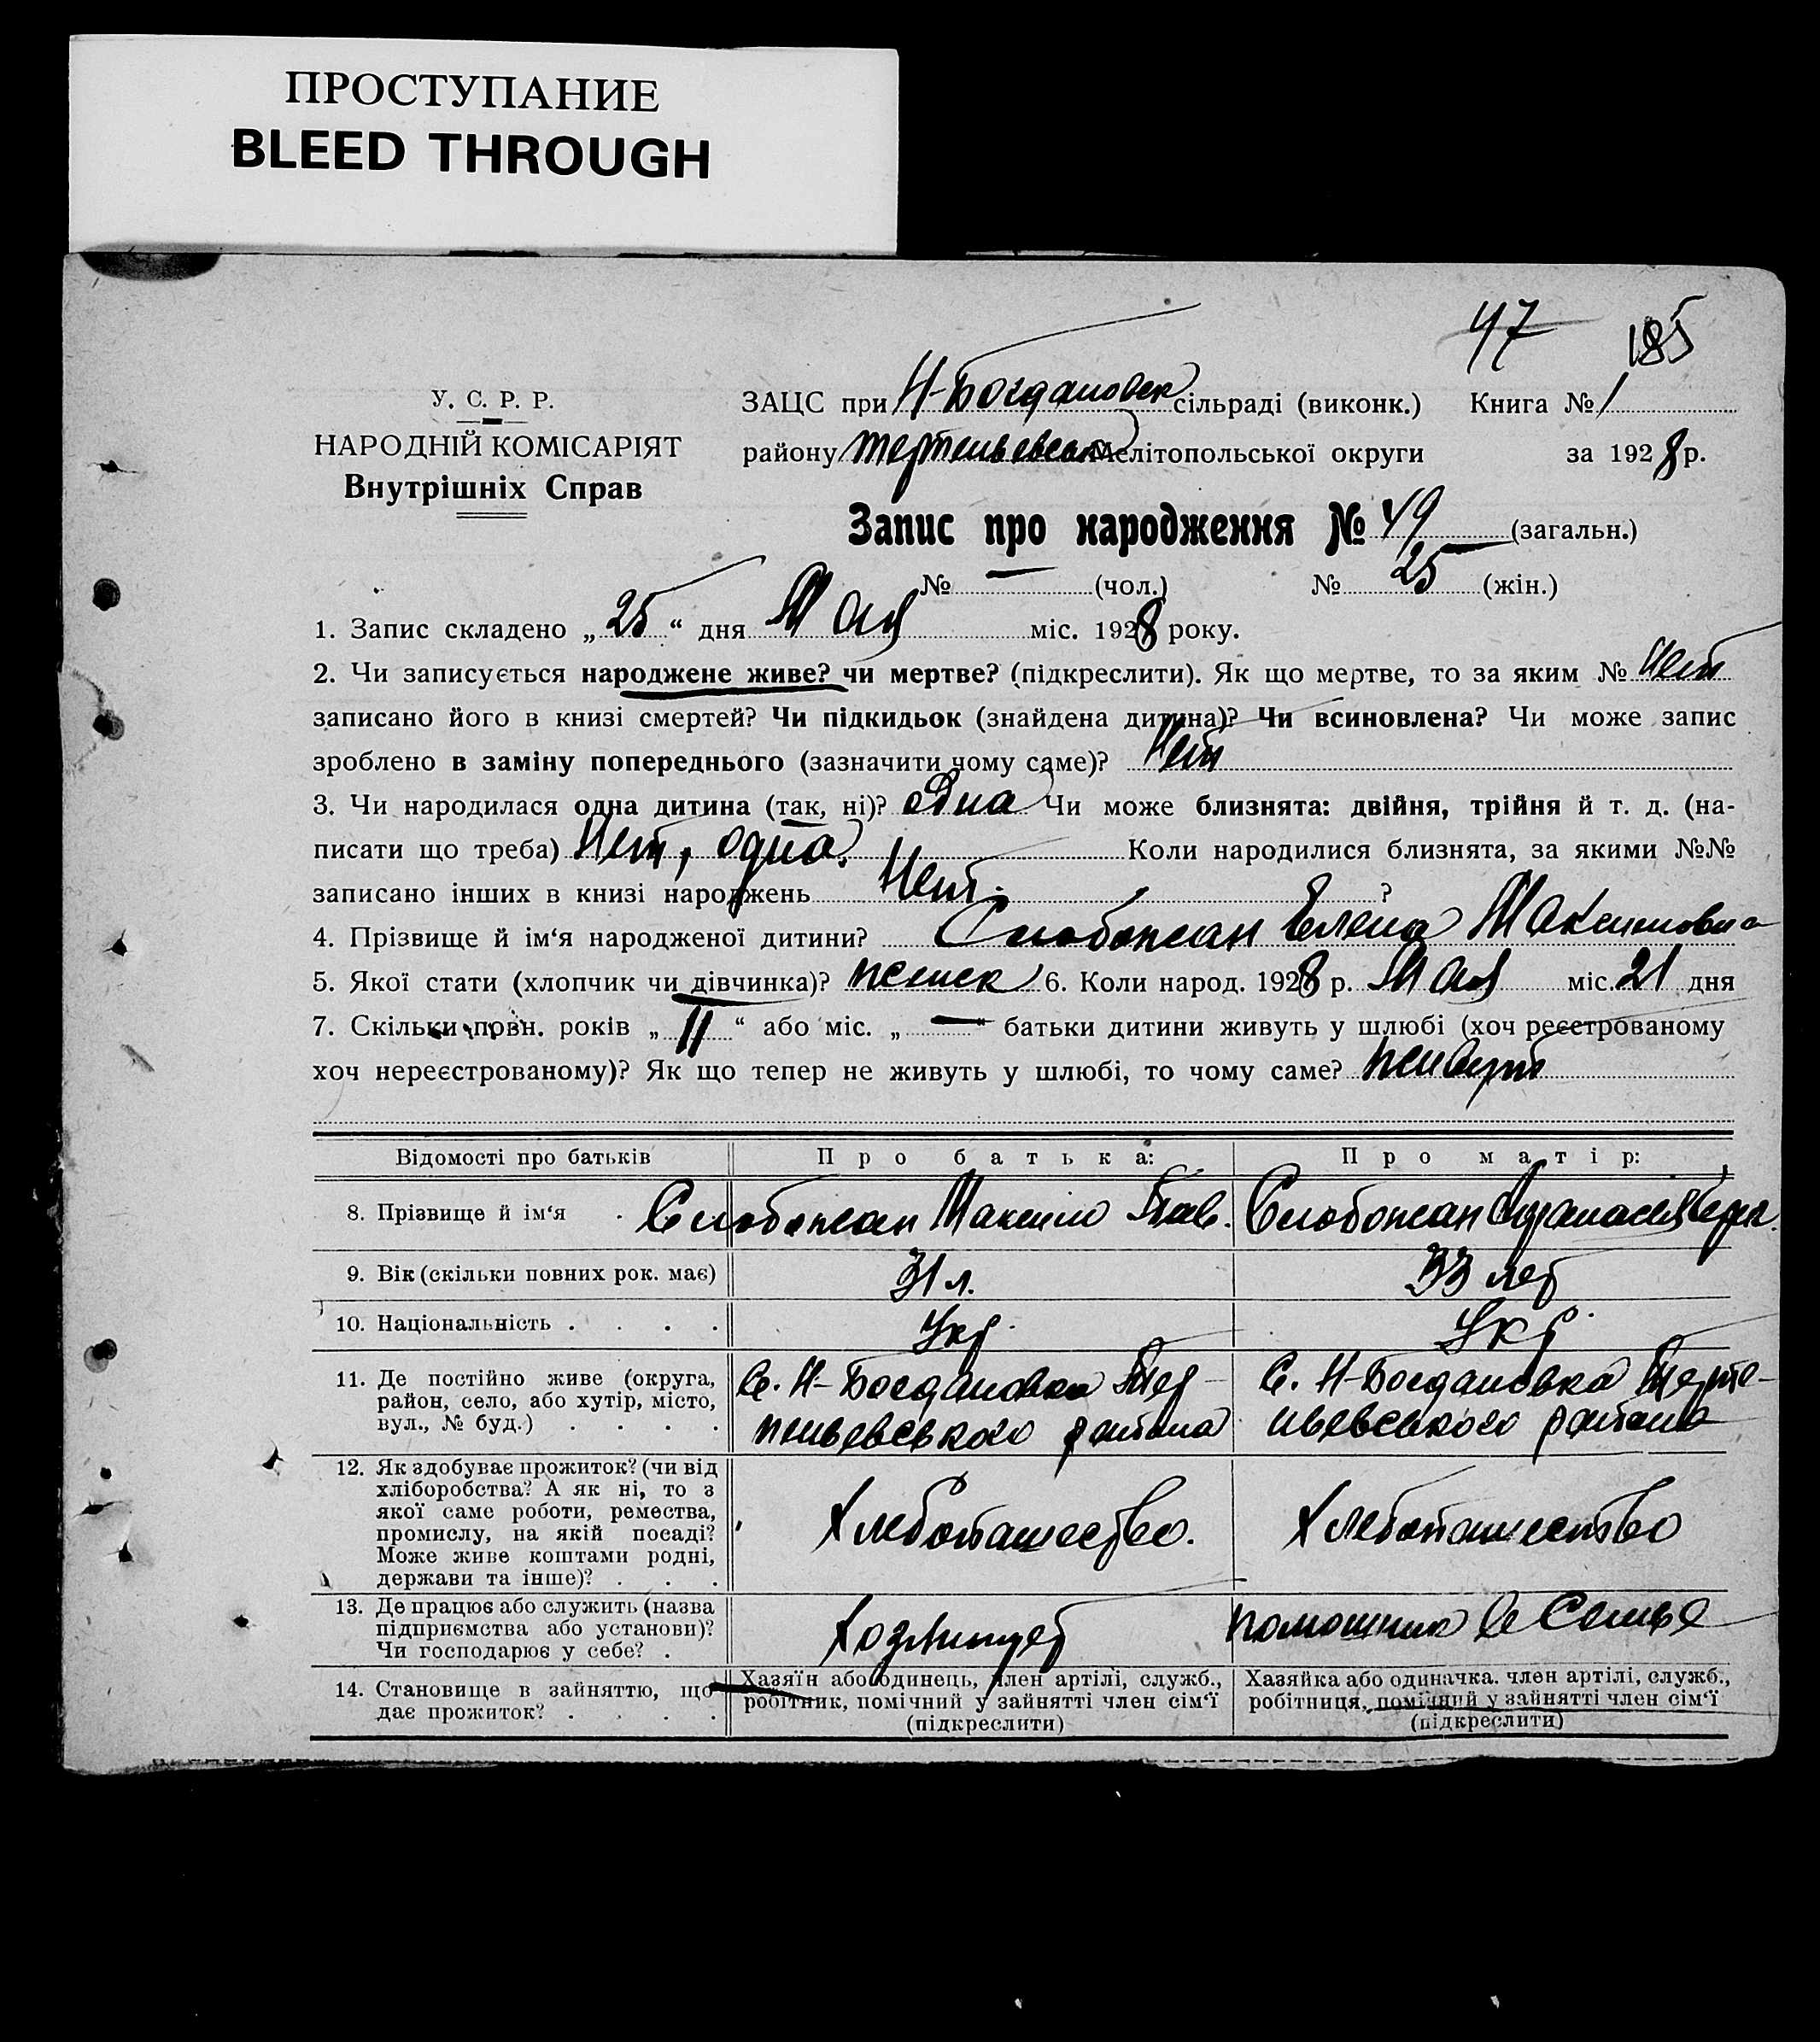 ПРОСТУПАНИЕ
BLEED THROUGH
47 185
У. С. Р. Р.
НАРОДНІЙ КОМІСАРІЯТ
Внутрішніх Справ
ЗАЦС при Н-Богдановск сільраді (виконк.) Книга № 1
району Терпеньевськ Мелітопольської округи за 1928 р.
Запис про народження № 49 (загальн.)
№ — (чол.) № 25 (жін.)
1. Запис складено „ 25 “ дня Мая міс. 1928 року.
2. Чи записується народжене живе? чи мертве? (підкреслити). Як що мертве, то за яким № Нет
записано його в книзі смертей? Чи підкидьок (знайдена дитина)? Чи всиновлена? Чи може запис
зроблено в заміну попереднього (зазначити чому саме)? Нет
3. Чи народилася одна дитина (так, ні)? одна Чи може близнята: двійня, трійня й т. д. (на-
писати що треба) Нет, одна. Коли народилися близнята, за якими №№
записано інших в книзі народжень Нет. ?
4. Прізвище й ім‘я народженої дитини? Слободжан Елена Максимовна
5. Якої стати (хлопчик чи дівчинка)? женск 6. Коли народ. 1928 р. Мая міс. 21 дня
7. Скільки повн. років „ 11 “ або міс. „ — “ батьки дитини живуть у шлюбі (хоч реєстрованому
хоч нереєстрованому)? Як що тепер не живуть у шлюбі, то чому саме? живут
Відомості про батьків Про батька: Про матір:
8. Прізвище й ім‘я . Слобожан Максим Пав. Слобожан Афанасия
9. Вік (скільки повних рок. має) 31 л. 33 лет
10. Національність . . . . Укр. Укр.
11. Де постійно живе (округа,
район, село, або хутір, місто,
вул., № буд.) . . . .
С. Н-Богдановка Тер-
пеньевського района
С. Н-Богдановка Терпе-
ньевського района
12. Як здобуває прожиток? (чи від
хліборобства? А як ні, то з
якої саме роботи, ремества,
промислу, на якій посаді?
Може живе коштами родні,
держави та інше)? . . .
Хлебопашество.
Хлебопашество
13. Де працює або служить (назва
підприємства або установи)?
Чи господарює у себе? .
помошник в Семье
14. Становище в зайняттю, що
дає прожиток? . . . .
Хазяїн або одинець, член артілі, служб.,
робітник, помічний у зайнятті член сім‘ї
(підкреслити)
Хазяйка або одиначка. член артілі, служб.,
робітниця, помічний у зайнятті член сім‘ї
(підкреслити)